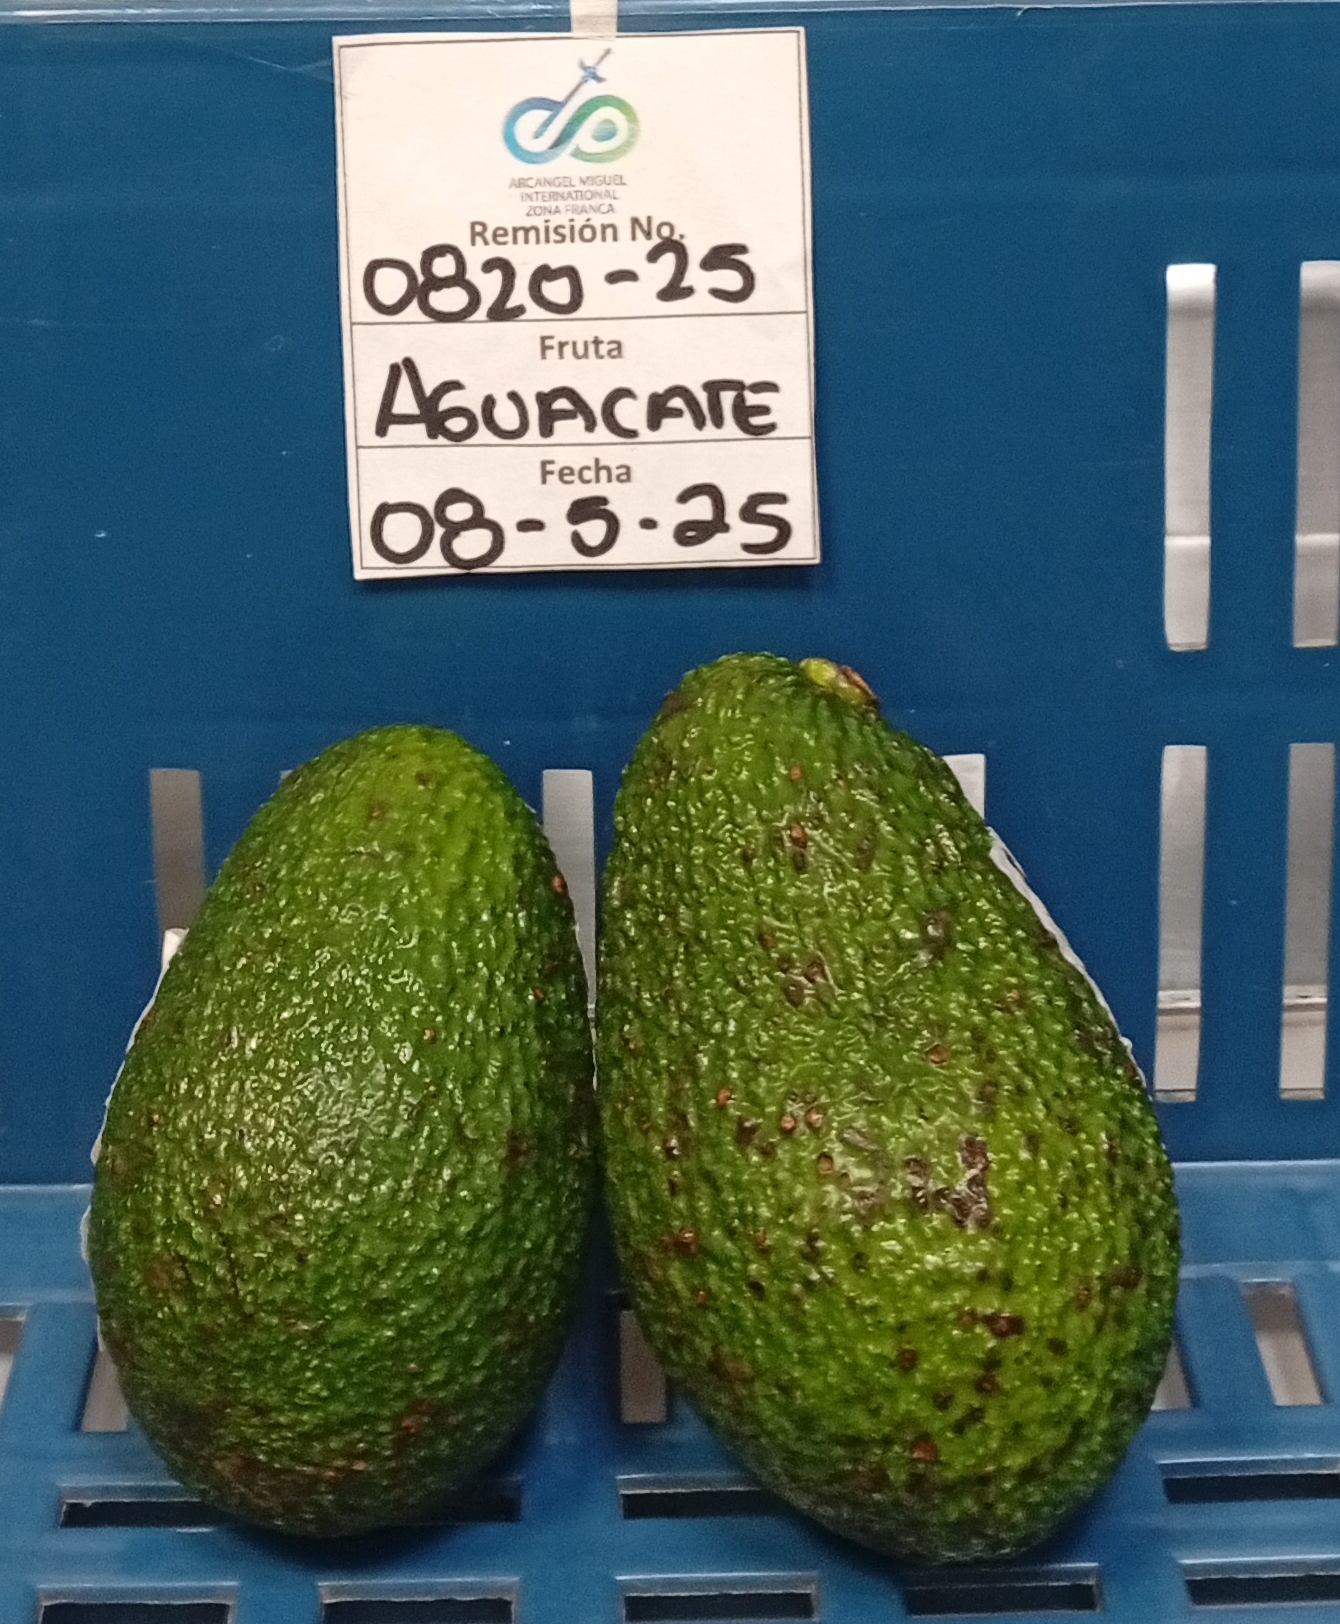 ARCANGEL MIGUEL
INTERNATIONAL
ZONA FRANCA
Remisión No.
0820-25
Fruta
AGUACATE
Fecha
08-5-25